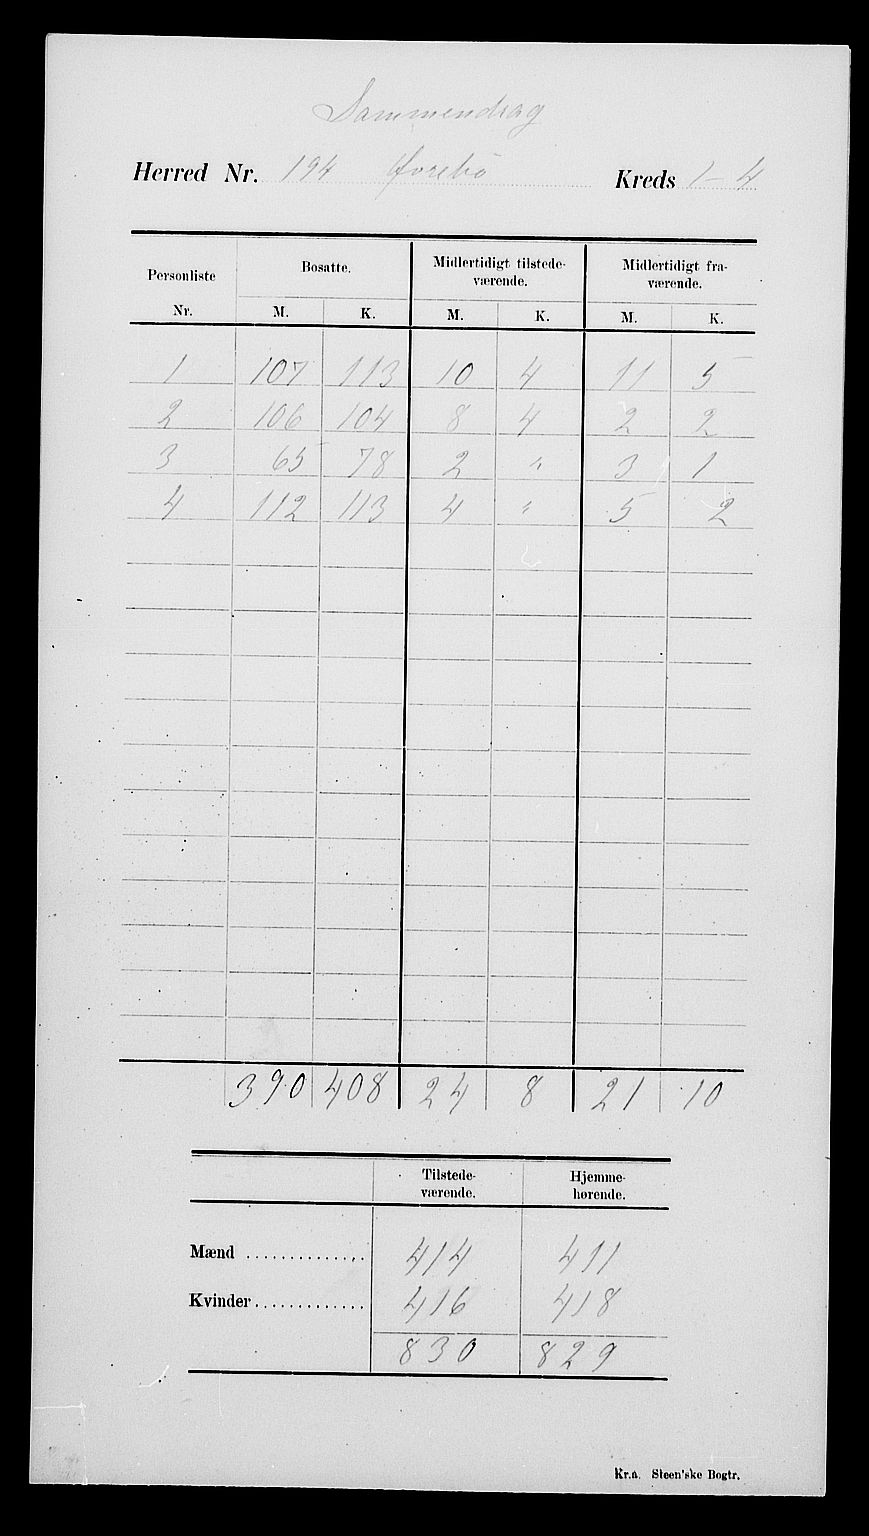 Sammendrag
Herred Nr. 194 Øvrebö Kreds 1-4
Personliste Nr. Bosatte. Midlertidigt tilstede-værende. Midlertidigt fra-værende.
M. K. M. K. M. K.
1 107 113 10 4 11 5
2 106 104 8 4 2 2
3 65 78 2 " 3 1
4 112 113 4 " 5 2
390 408 24 8 21 10
Tilstede-værende. Hjemme-hørende.
Mænd .............. 414 411
Kvinder............. 416 418
830 829
Kr.a. Steen'ske Bogtr.